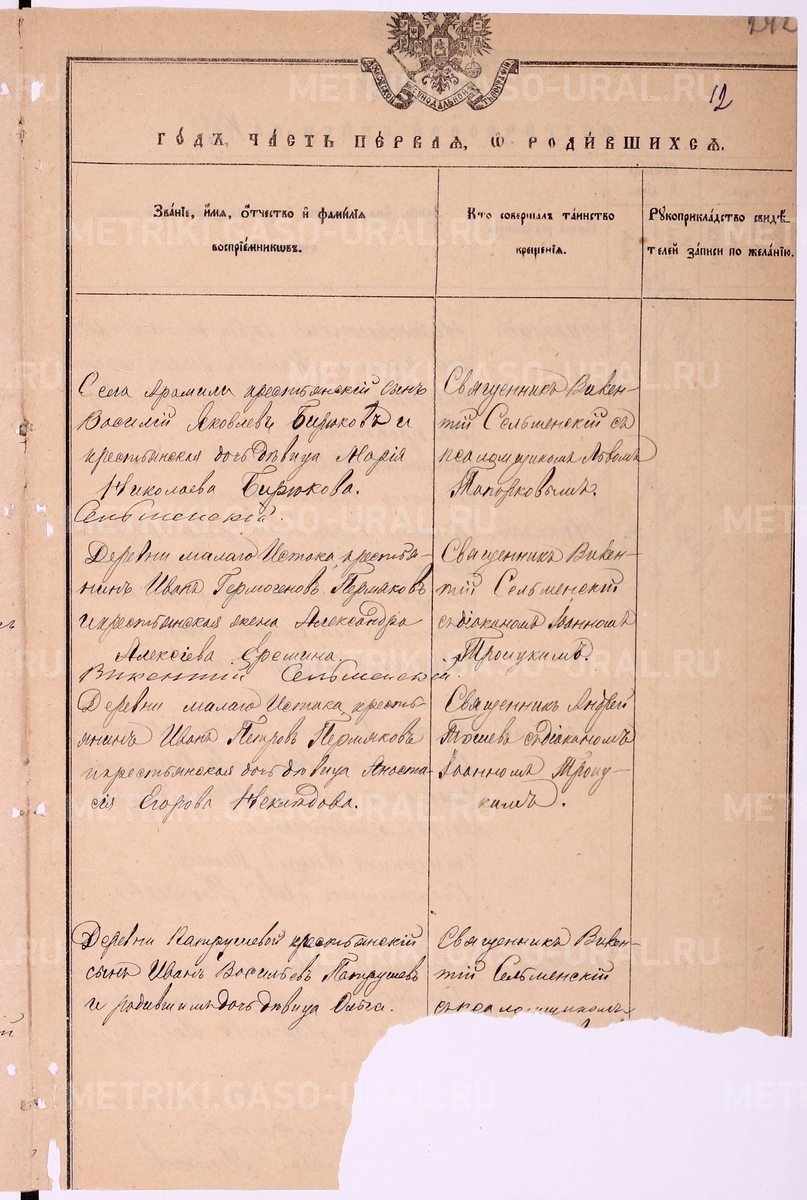 242
12
МОСКОВСКОЙ СѴНОДАЛЬНОЙ ТѴПОГРАФІИ
ГОДЪ, ЧАСТЬ ПЕРВАЯ, Ѡ РОДИВШИХСЯ.
Званіе, имя, отчество и фамилія
воспріемникѡвъ.
Кто совершалъ таинство
крещенія.
Рукоприкладство свидѣ-
телей записи по желанію.
Села Арамили крестьянскій сынъ
Василій Яковлевъ Бирюковъ и
крестьянская дочь дѣвица Марія
Николаева Бирюкова.
Сельменскій.
Священникъ Викен-
тій Сельменскій съ
псаломщикомъ Львомъ
Топорковымъ.
Деревни малаго Истока кресть-
янинъ Иванъ Гермогеновъ Пермяковъ
и крестьянская жена Александра
Алексіева Еремина.
Викентій Сельменскій.
Священникъ Викен-
тій Сельменскій
съ діакономъ Іоанномъ
Троицкимъ.
Деревни малаго Истока кресть-
янинъ Иванъ Петровъ Пермяковъ
и крестьянская дочь дѣвица Анаста-
сія Егорова
Священникъ Андрей
съ діакономъ
Іоанномъ Троиц-
кимъ.
Деревни Патрушевой крестьянскій
сынъ Иванъ Васильевъ Патрушевъ
и родившимъ дочь дѣвица Ольга.
Священникъ Викен-
тій Сельменскій
съ псаломщикомъ
METRIKI.GASO-URAL.RU